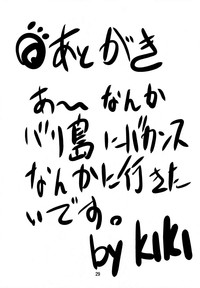 あとがき
あ〜〜なんか
バリ島にバカンス
なんかに行きた
いです。
by KIKI
29